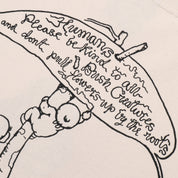 Humans
please be kind to all
Bush Creatures
and don't pull flowers up by the roots